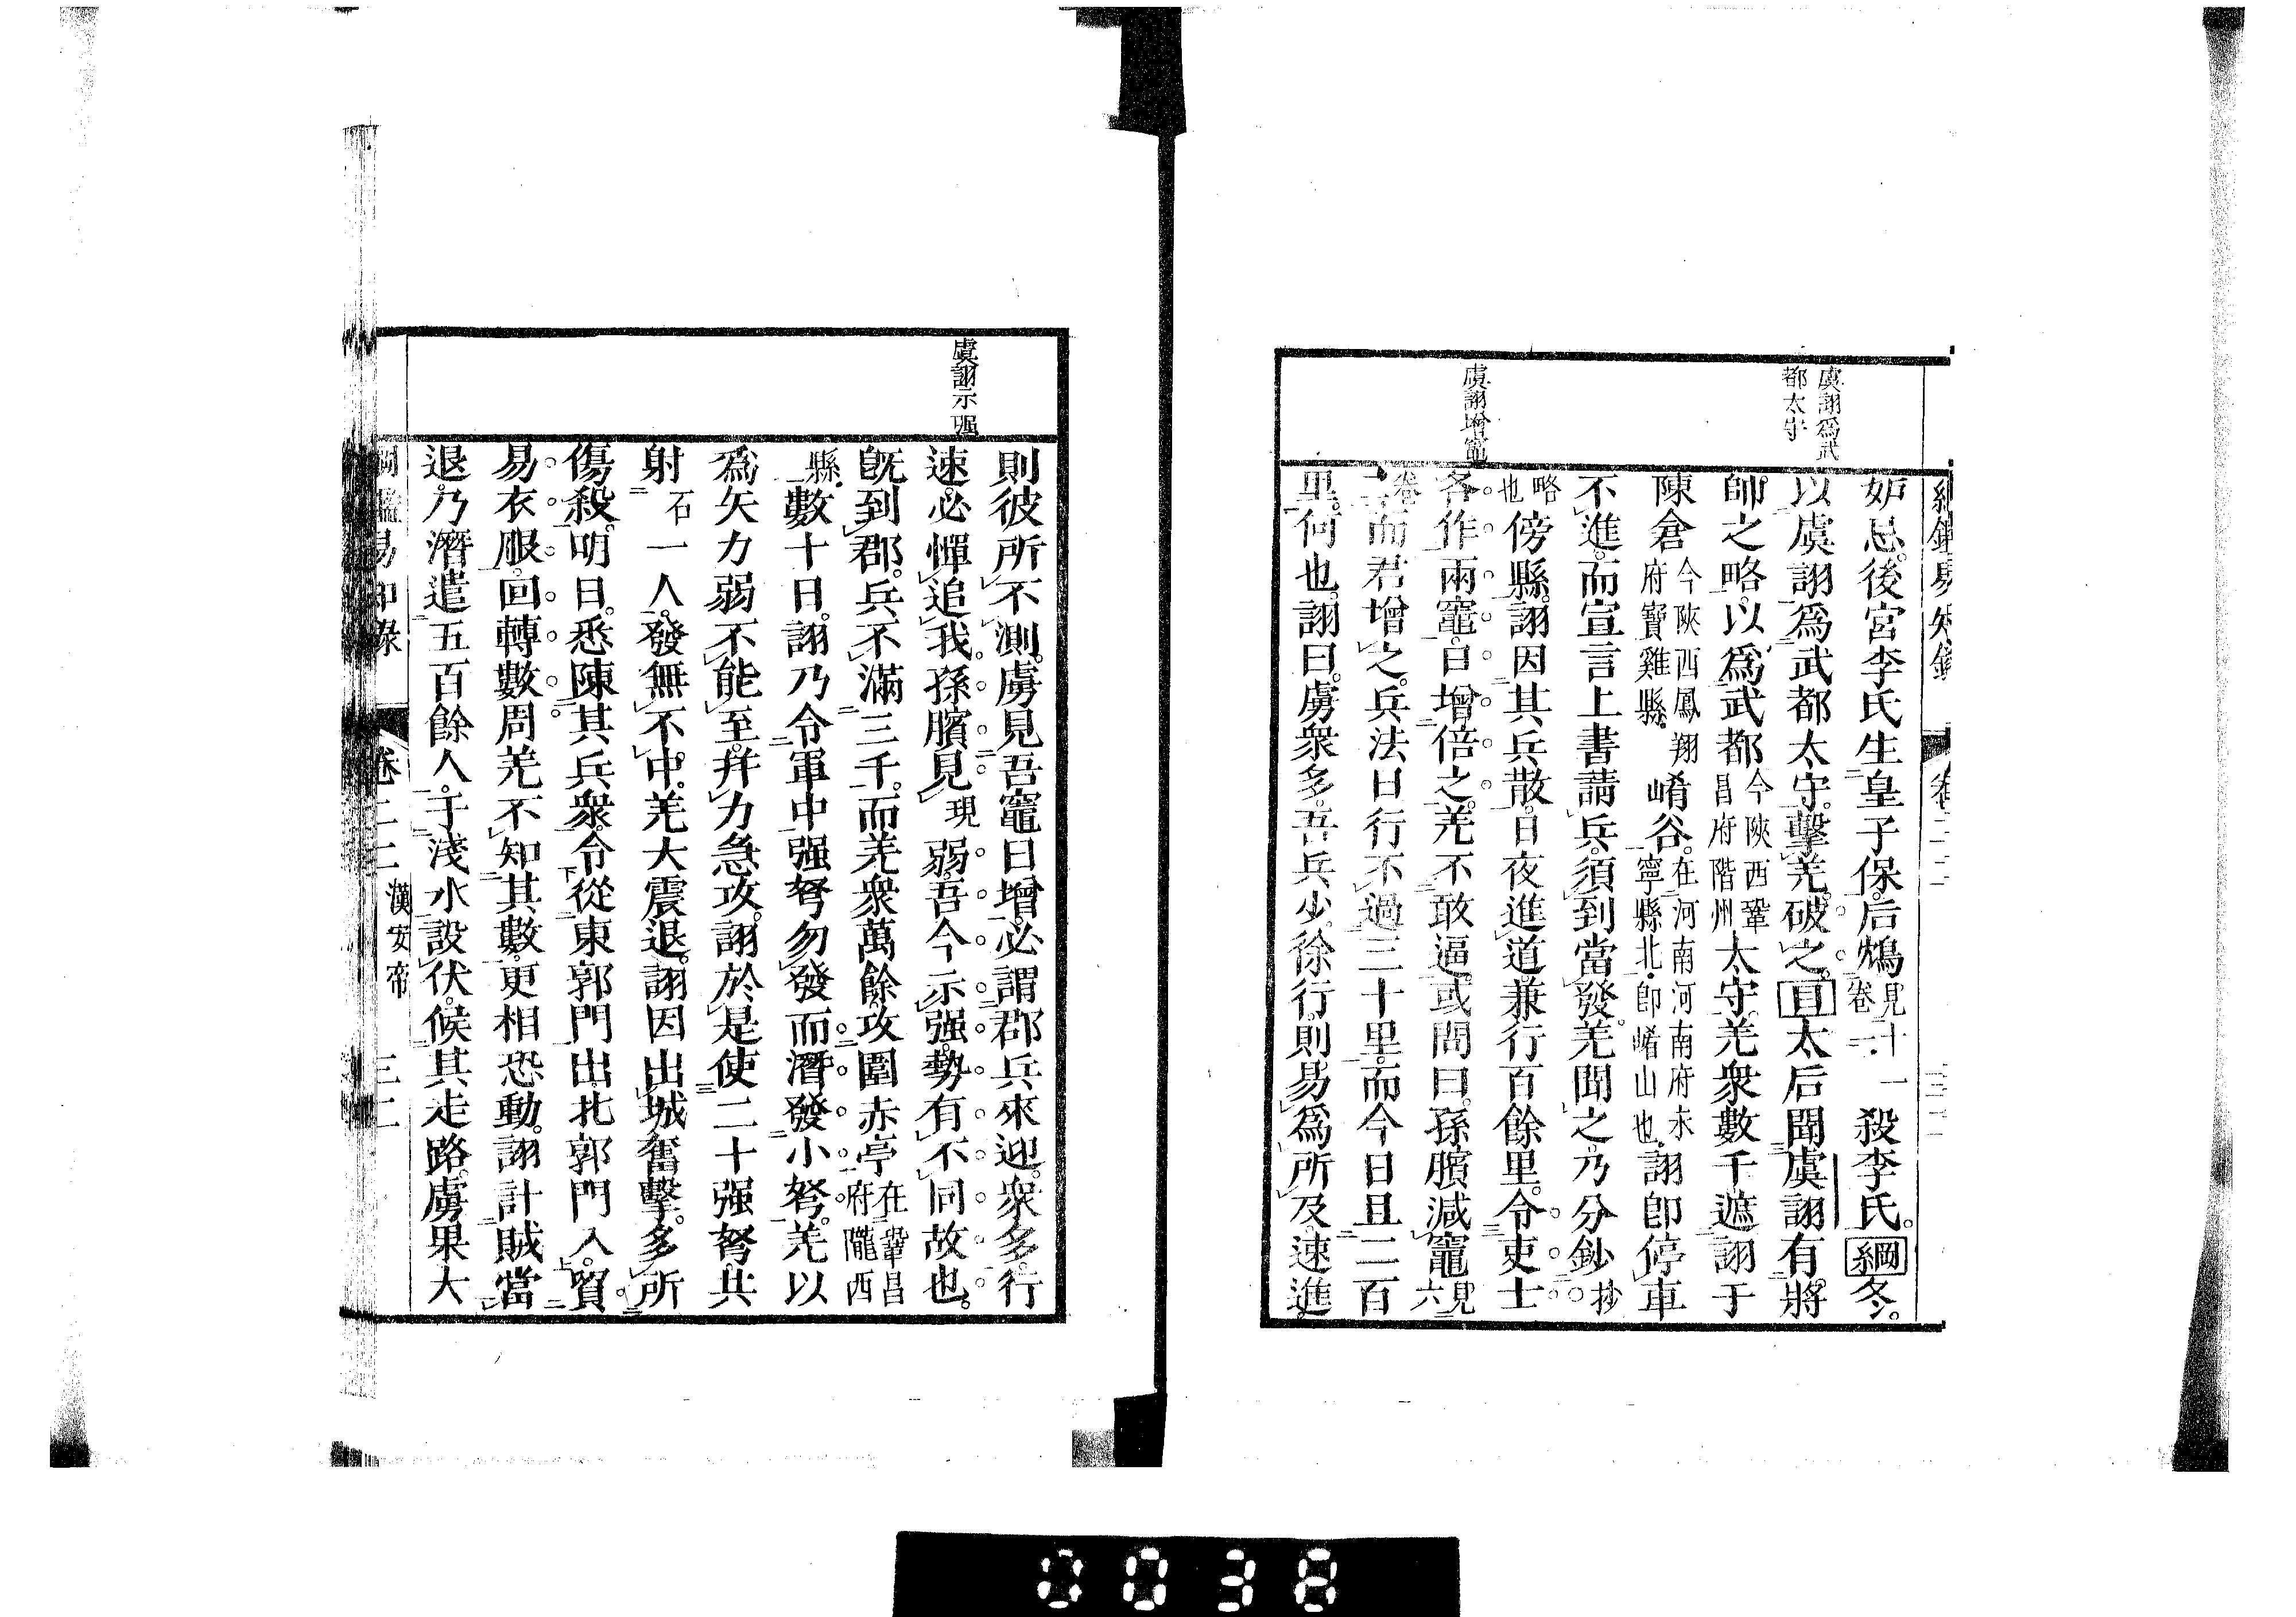 虞詡爲武
都太守
虞詡增竈
妒忌。後宮李氏生皇子保。后鴆見十一卷二。殺李氏。綱冬。
以虞詡爲武都太守。擊羌。破之。目太后聞虞詡有將
帥之略。以爲武都今陝西鞏昌府階州太守。羌衆數千遮詡于
陳倉今陝西鳳翔府寶雞縣。崤谷。在河南河南府永寧縣北。卽崤山也。詡卽停車
不進。而宣言上書請兵。須到當發。羌聞之。乃分鈔抄
略也傍縣。詡因其兵散。日夜進道兼行百餘里。令吏士
各作兩竈。日增倍之。羌不敢逼。或問曰。孫臏減竈見六
卷而君增之。兵法日行不過三十里。而今日且二百
里。何也。詡曰。虜衆多。吾兵少。徐行。則易爲所及。速進。
虞詡示强
則彼所不測。虜見吾竈日增。必謂郡兵來迎。衆多。行
速。必憚追我。孫臏見現弱。吾今示强。勢有不同故也。
旣到郡。兵不滿三千。而羌衆萬餘。攻圍赤亭在鞏昌府隴西
縣。數十日。詡乃令軍中强弩勿發。而潛發小弩。羌以
爲矢力弱不能至。幷力急攻。詡於是使二十强弩共
射石一人。發無不中。羌大震退。詡因出城奮擊。多所
傷殺。明日。悉陳其兵衆。令從東郭門出。北郭門入。貿
易衣服。回轉數周。羌不知其數。更相恐動。詡計賊當
退。乃潛遣五百餘人。于淺水設伏。候其走路。虜果大
綱鑑易知錄 卷二二 漢安帝 三二
0038